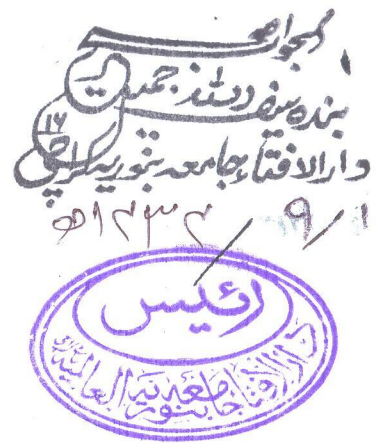 الجواب صحیح
بندہ سیف اللہ جمیل
دارالافتاء جامعہ بنوریہ کراچی ۱۶
۱/۹/۱۴۳۴ھ
رئیس
دارالافتاء جامعہ بنوریہ العالمیہ